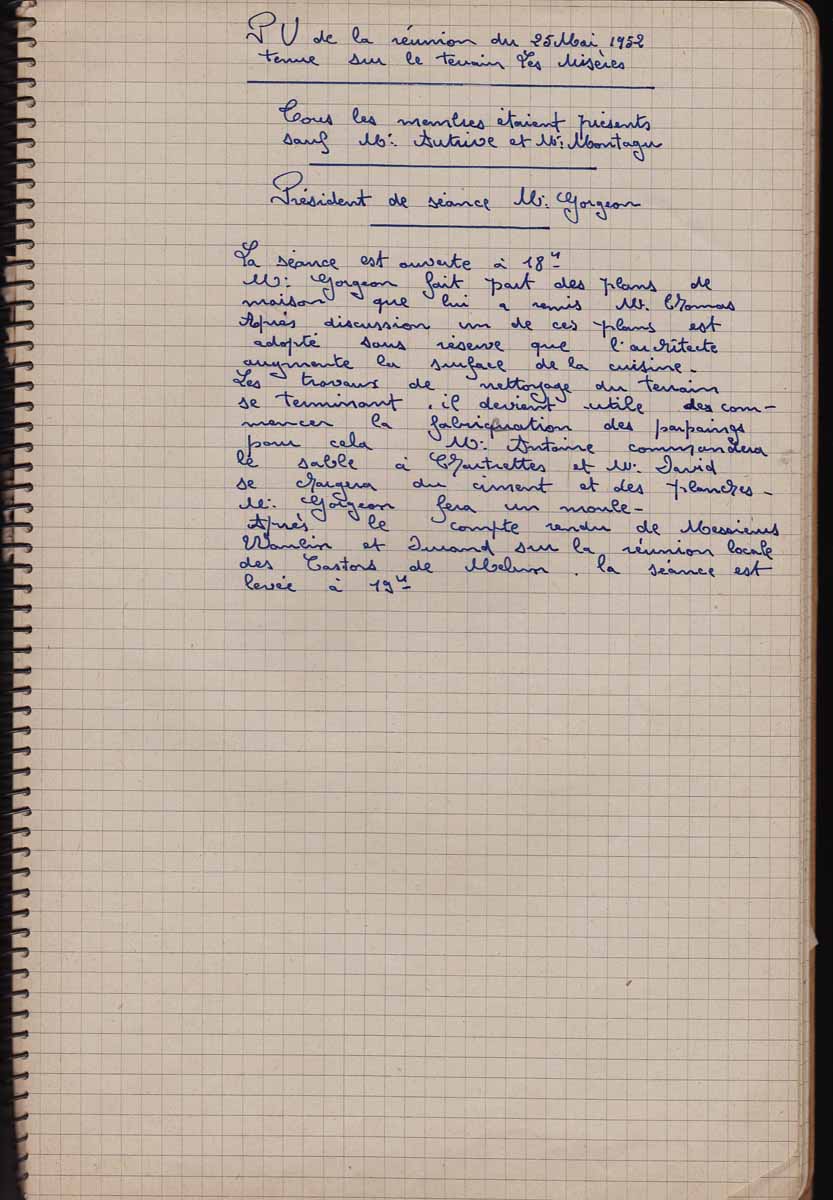 PV de la réunion du 25 Mai 1952
tenue sur le terrain Les Misères
Tous les membres étaient présents
sauf Mr: Autrive et Mr: Montagu
Président de séance Mr: Gorgeon
La séance est ouverte à 18H
Mr: Gorgeon fait part des plans de
maison que lui a remis Mr. Thomas
Après discussion un de ces plans est
adopté sous réserve que l'architecte
augmente la surface de la cuisine.
Les travaux de nettoyage du terrain
se terminant, il devient utile de com-
mencer la fabriquation des parpaings
pour cela Mr: Antoine commandera
le sable à Chartrettes et Mr: David
se chargera du ciment et des planches.
Mr: Gorgeon fera un moule.
Après le compte rendu de Messieurs
Vaulin et Durand sur la réunion locale
des Castors de Melun. la séance est
levée à 19H